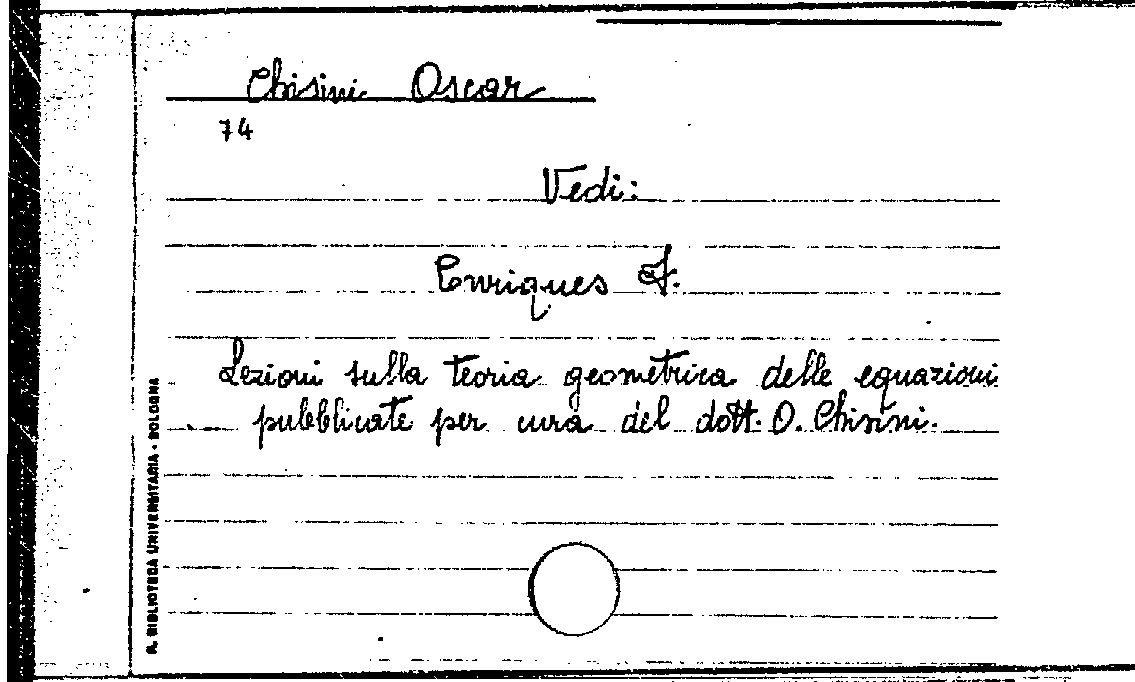 Chisini Oscar
74
Vedi:
Enriques F.
Lezioni sulla teoria geometrica delle equazioni
pubblicate per cura del dott. O. Chisini.
R. BIBLIOTECA UNIVERSITARIA - BOLOGNA